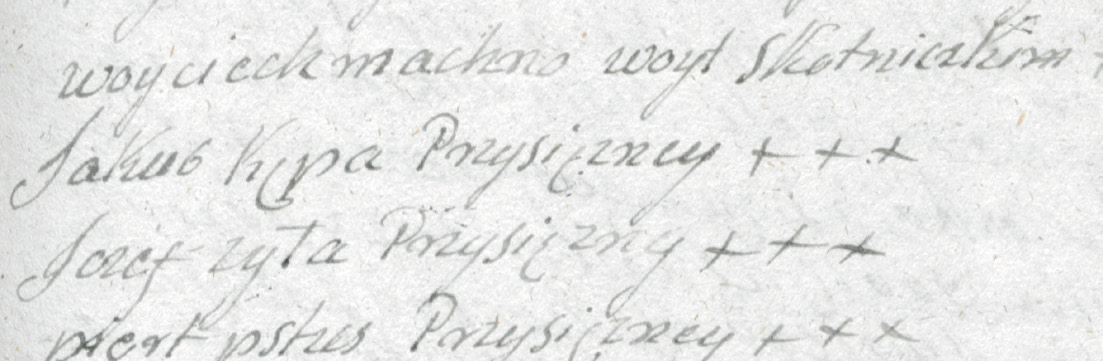 woyciech machno woyt Skotniczkim +
Jakub Kępa Przysięzney + + +
Jozef zyła Przysięzny + + +
piotr pstus Przysięzney + + +